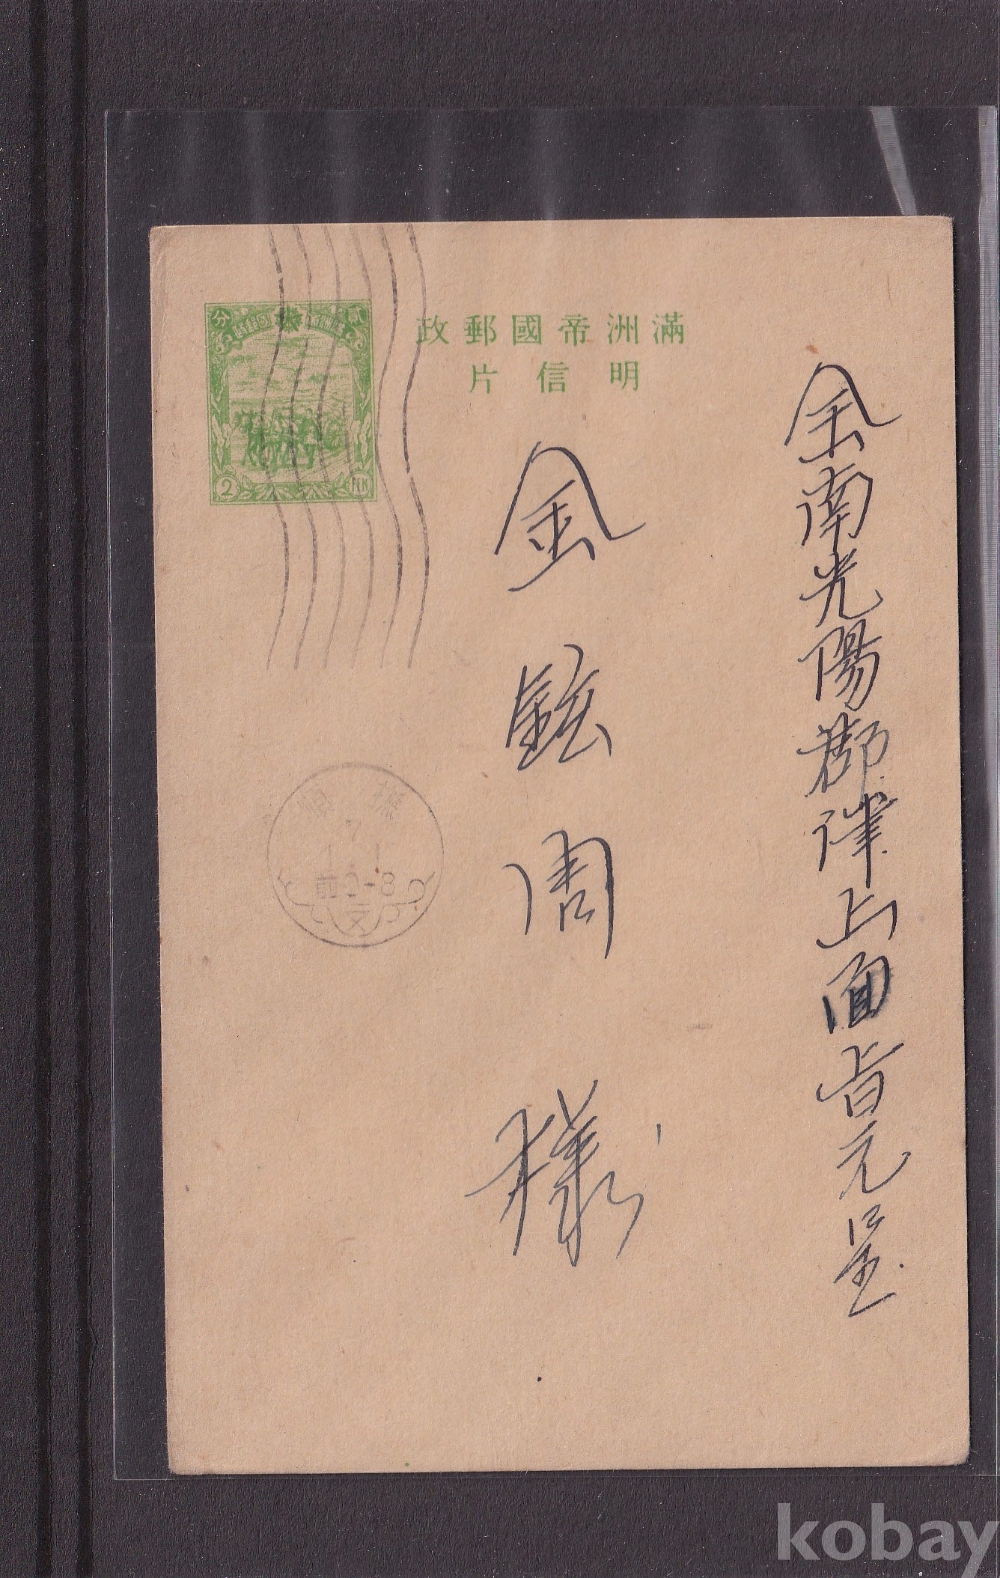 滿洲帝國郵政
明信片
分 貳
2 FEN
全南光陽郡津上面旨元里
金鉉周 樣
7
1.1
前0-8
kobay